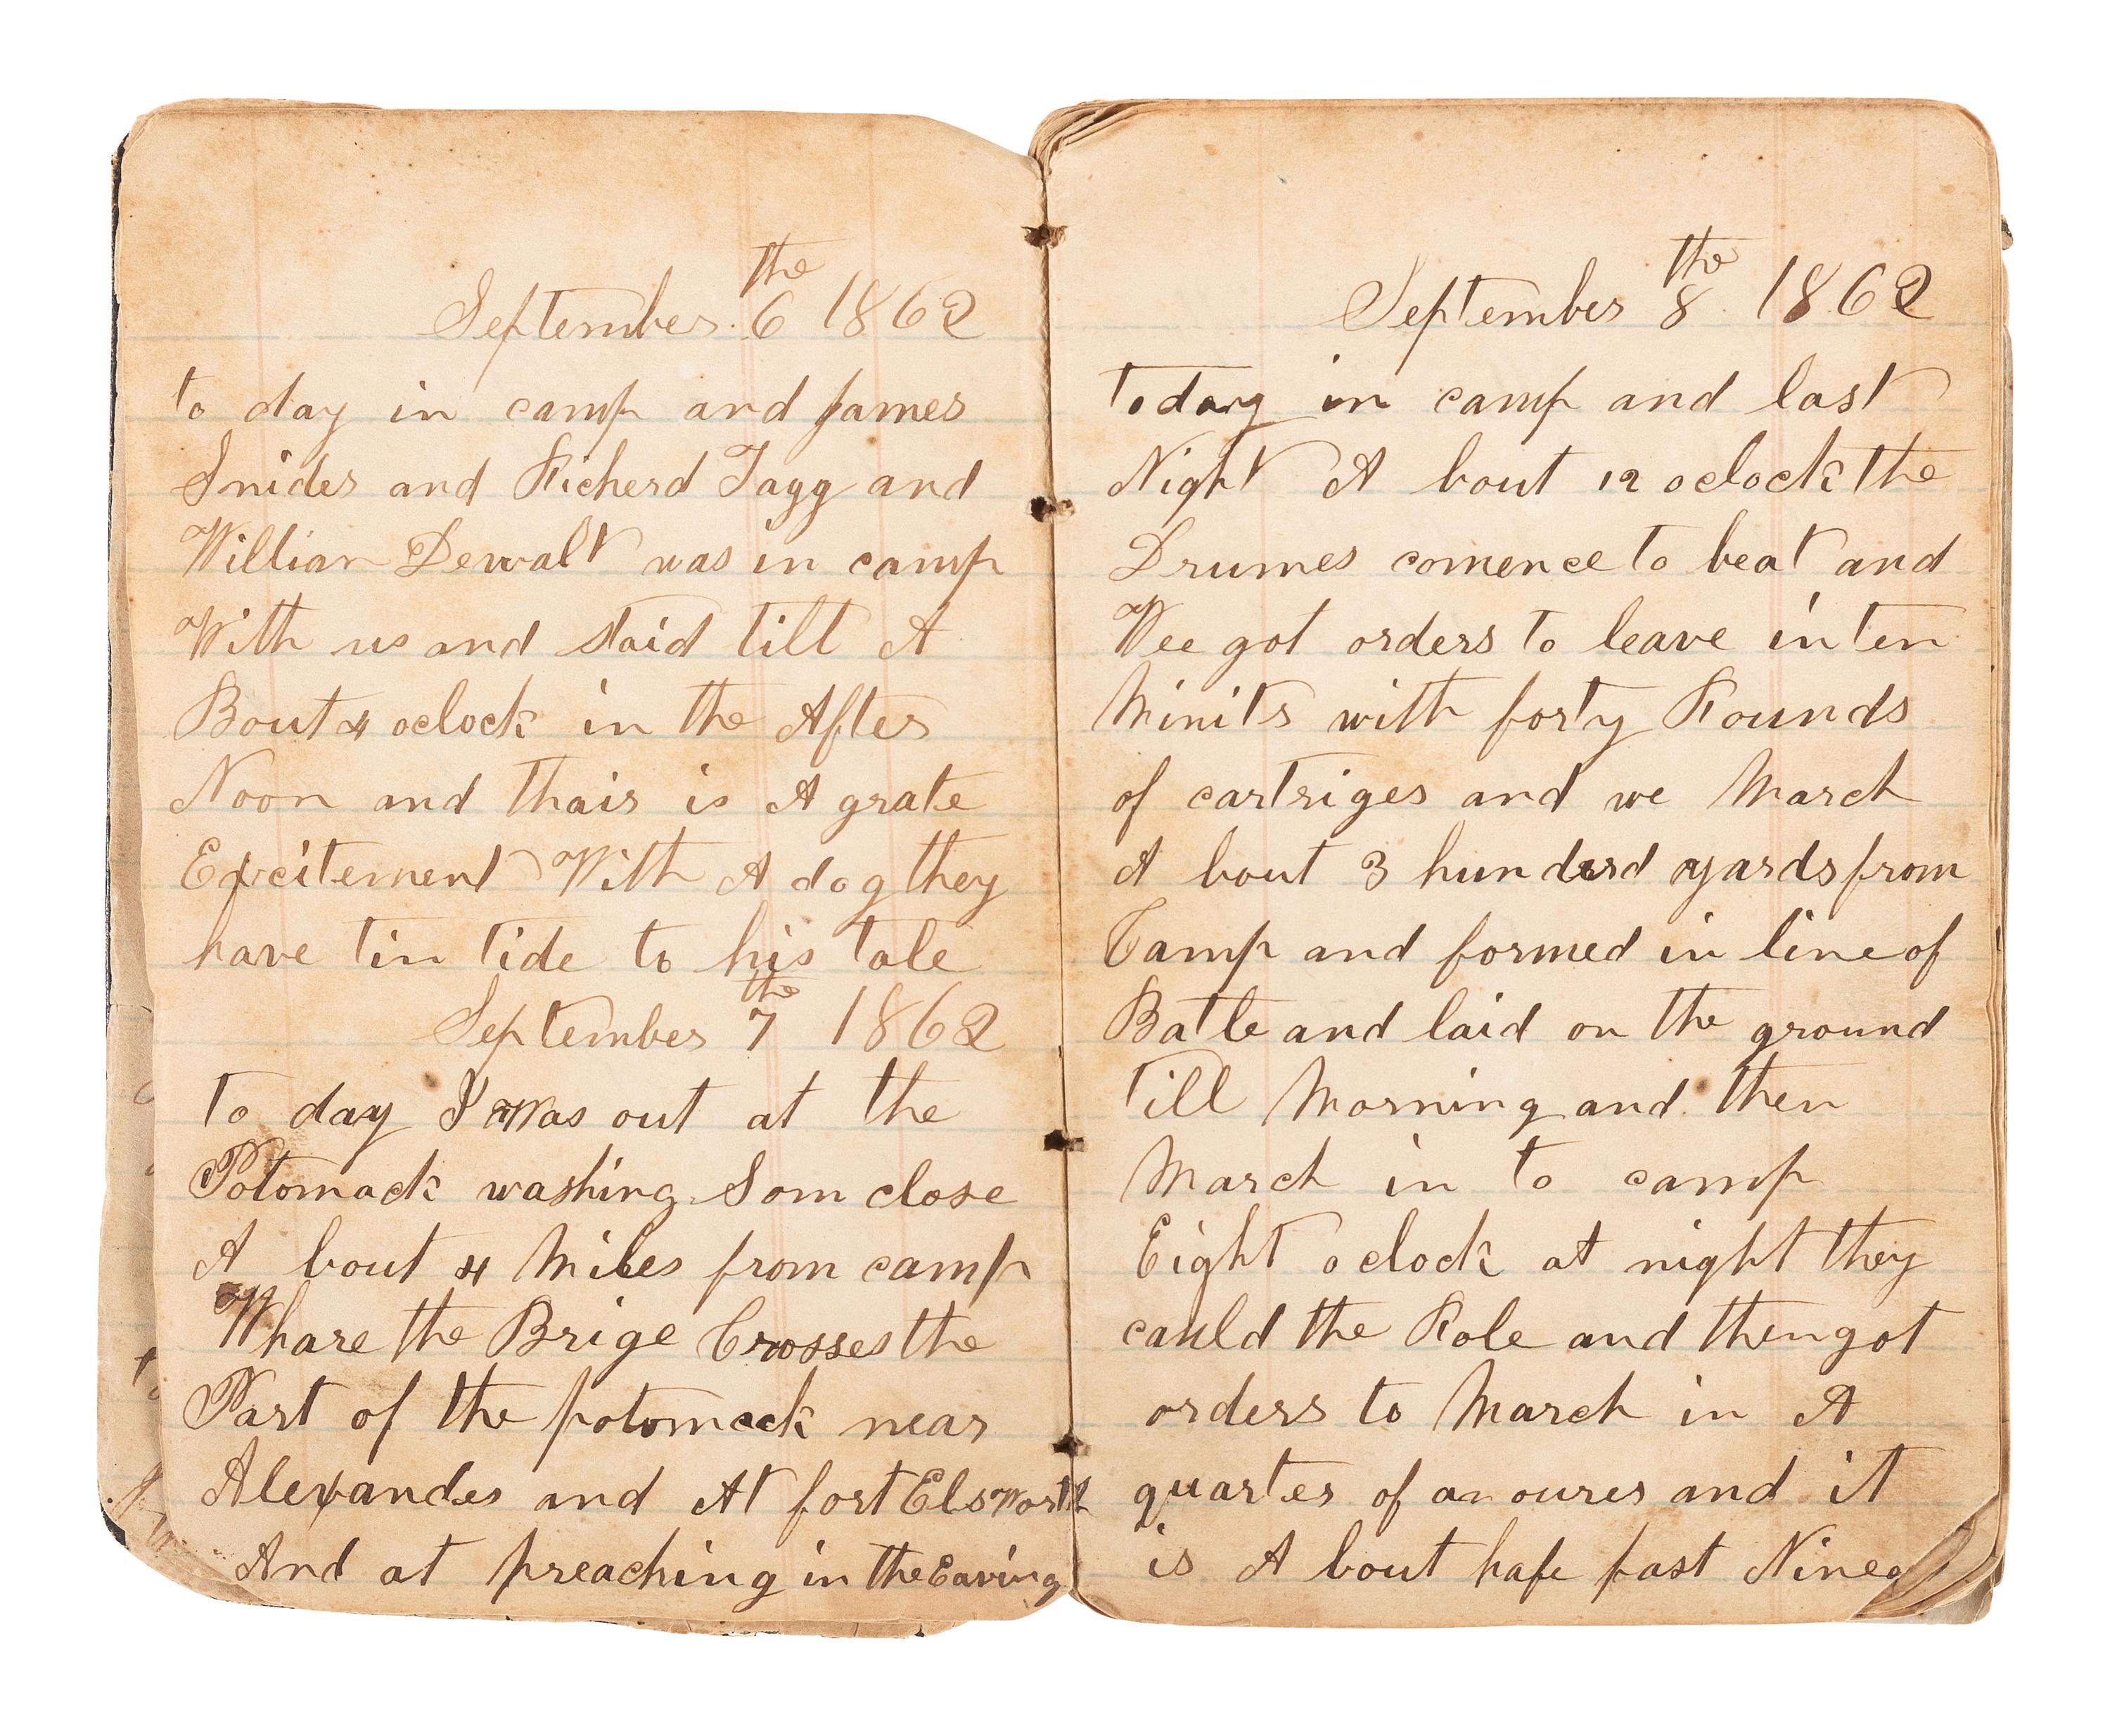 September 6 the 1862
to day in camp and James
Snider and Richerd Tagg and
Willian Dewalt was in camp
With us and staid till A
Bout 4 oclock in the After
Noon and thair is A grate
Excitement With A dog they
have tin tide to his tale
September 7 the 1862
to day I Was out at the
Potomack washing Som close
A bout 4 Miles from camp
Whare the Brige Crosses the
Part of the potomack near
Alexander and At fort Elsworth
And at preaching in the Eaving
September 8 the 1862
today in camp and last
Night A bout 12 oclock the
Drumes comence to beat and
Wee got orders to leave in ten
Minits with forty Rounds
of cartriges and we March
A bout 3 hunderd yards from
Camp and formed in line of
Batle and laid on the ground
till Morning and then
March in to camp
Eight oclock at night they
cauld the Role and then got
orders to March in A
quarter of an ourer and it
is A bout hafe past Nine